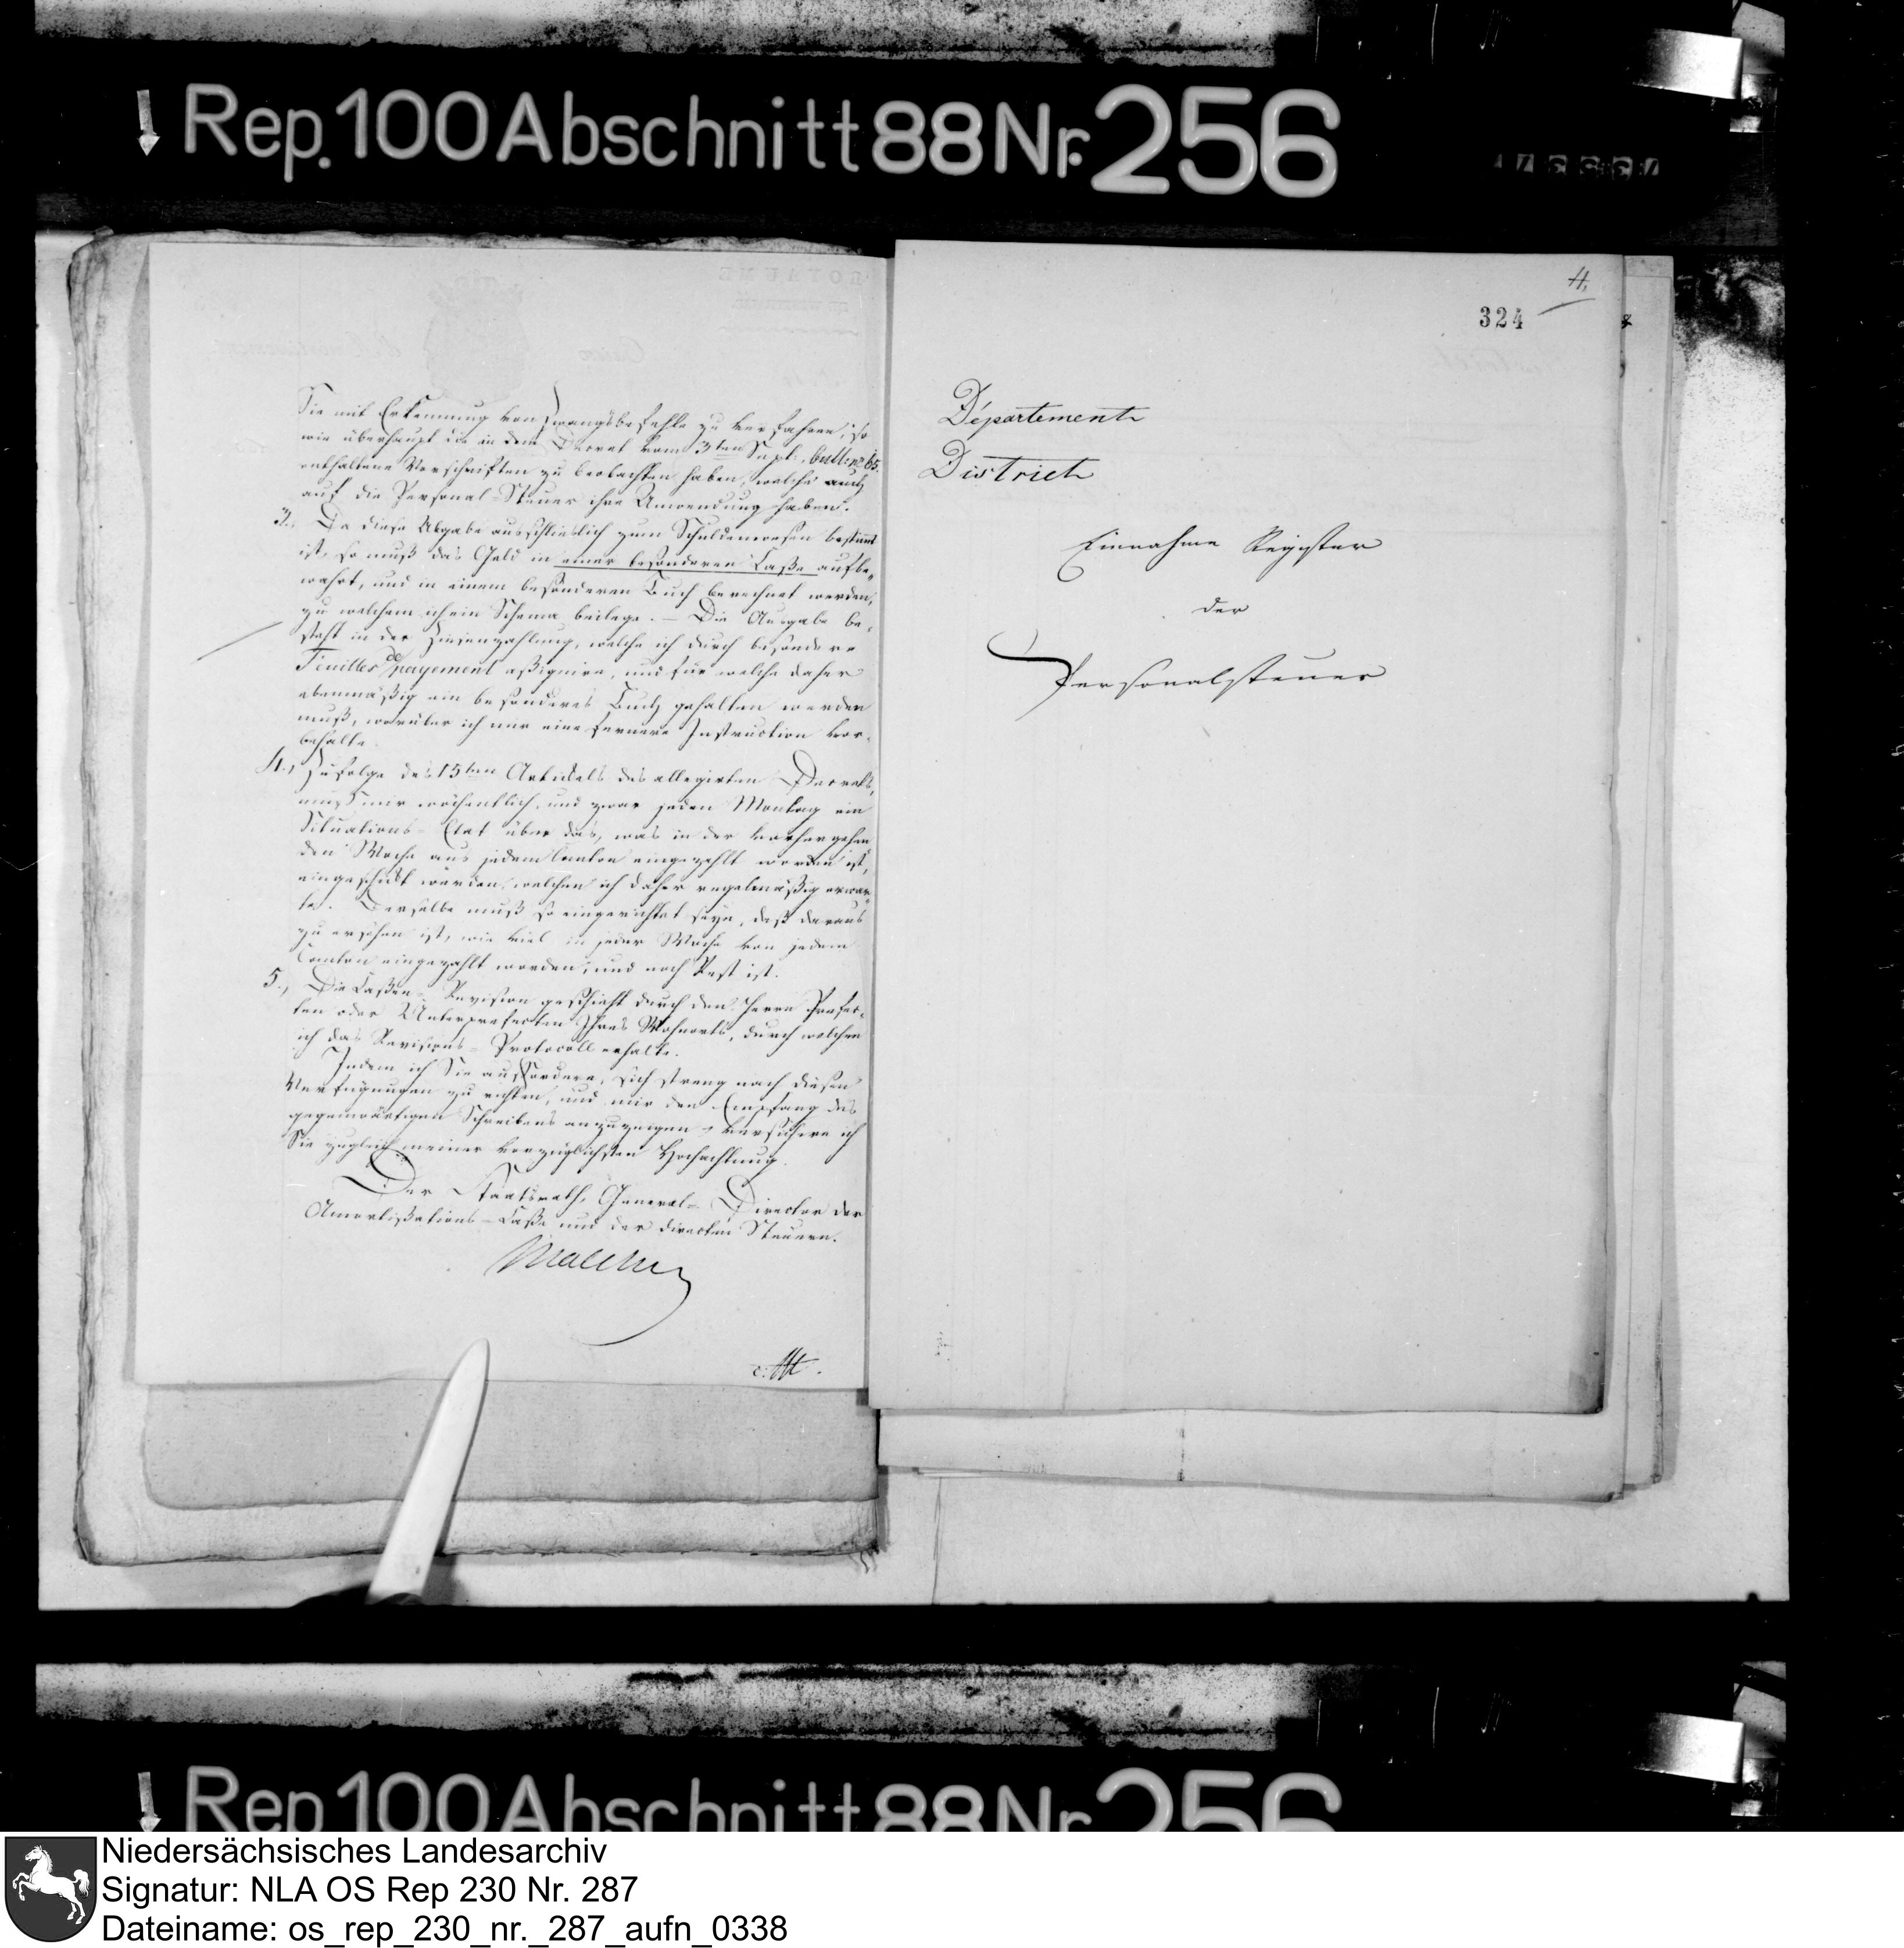 Rep. 100 Abschnitt 88 Nr. 256
Sie mit Erkennung von Zwangsbefehle zu verfahren, so
wie überhaupt die in dem Decret vom 3ten Sept. bull: no 65.
enthaltene Vorschriften zu beobachten haben, welche auch
auf die Personal-Steuer ihre Anwendung haben.
3., Da diese Abgabe ausschlieslich zum Schuldenwesen bestimt
ist, so muß das Geld in einer besonderen Caße aufbe„
wahrt, und in einem besonderen Buch berechnet werden,
zu welchem ich ein Schema beilege. – Die Ausgabe be„
steht in der Zinsenzahlung, welche ich durch besondere
Feuilles de payement aßignire, und für welche daher
ebenmäßig ein besonderes Buch gehalten werden
muß, worüber ich mir eine fernere Instruction vor„
behalte.
4., Zufolge des 15ten Artickels des allegirten Decrets,
muß mir wöchentlich, und zwar jeden Montag ein
Situations-Etat über das, was in der vorhergehen„
den Woche aus jedem Canton eingezahlt worden ist,
eingeschickt werden, welchen ich daher regelmäßig erwar„
te. Derselbe muß so eingerichtet seyn, daß daraus
zu ersehen ist, wie viel in jeder Woche von jedem
Canton eingezahlt worden, und noch Rest ist.
5., Die Caßen-Revision geschieht durch den Herrn Prefec„
ten oder Unterprefecten Ihres Wohnorts, durch welchen
ich das Revisions-Protocoll erhalte.
Indem ich Sie auffordere, sich streng nach diesen
Verfügungen zu richten, und mir den Empfang des
gegenwärtigen Schreibens anzuzeigen, versichere ich
Sie zugleich meiner vorzüglichsten Hochachtung.
Der Staatsrath, General-Director der
Amortisations-Caße und der directen Steuern.
Malchus
4.
324
Département
District
Einnahme Register
der
Personalsteuer
Rep. 100 Abschnitt 88 Nr. 256
Niedersächsisches Landesarchiv
Signatur: NLA OS Rep 230 Nr. 287
Dateiname: os_rep_230_nr._287_aufn_0338